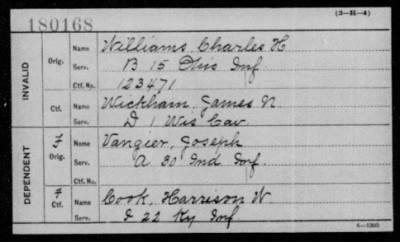 180168
(3-H-4)
INVALID
Orig.
Name Williams, Charles H
Serv. B 15 Ohio Inf
Ctf. No. 123471
Ctf.
Name Wickham, James N.
Serv. D 1 Wis Cav
DEPENDENT
Orig.
Name Vangier, Joseph
Serv. A 30 Ind Inf.
Ctf. No.
Ctf.
Name Cook, Harrison W.
Serv. 22 Ky Inf